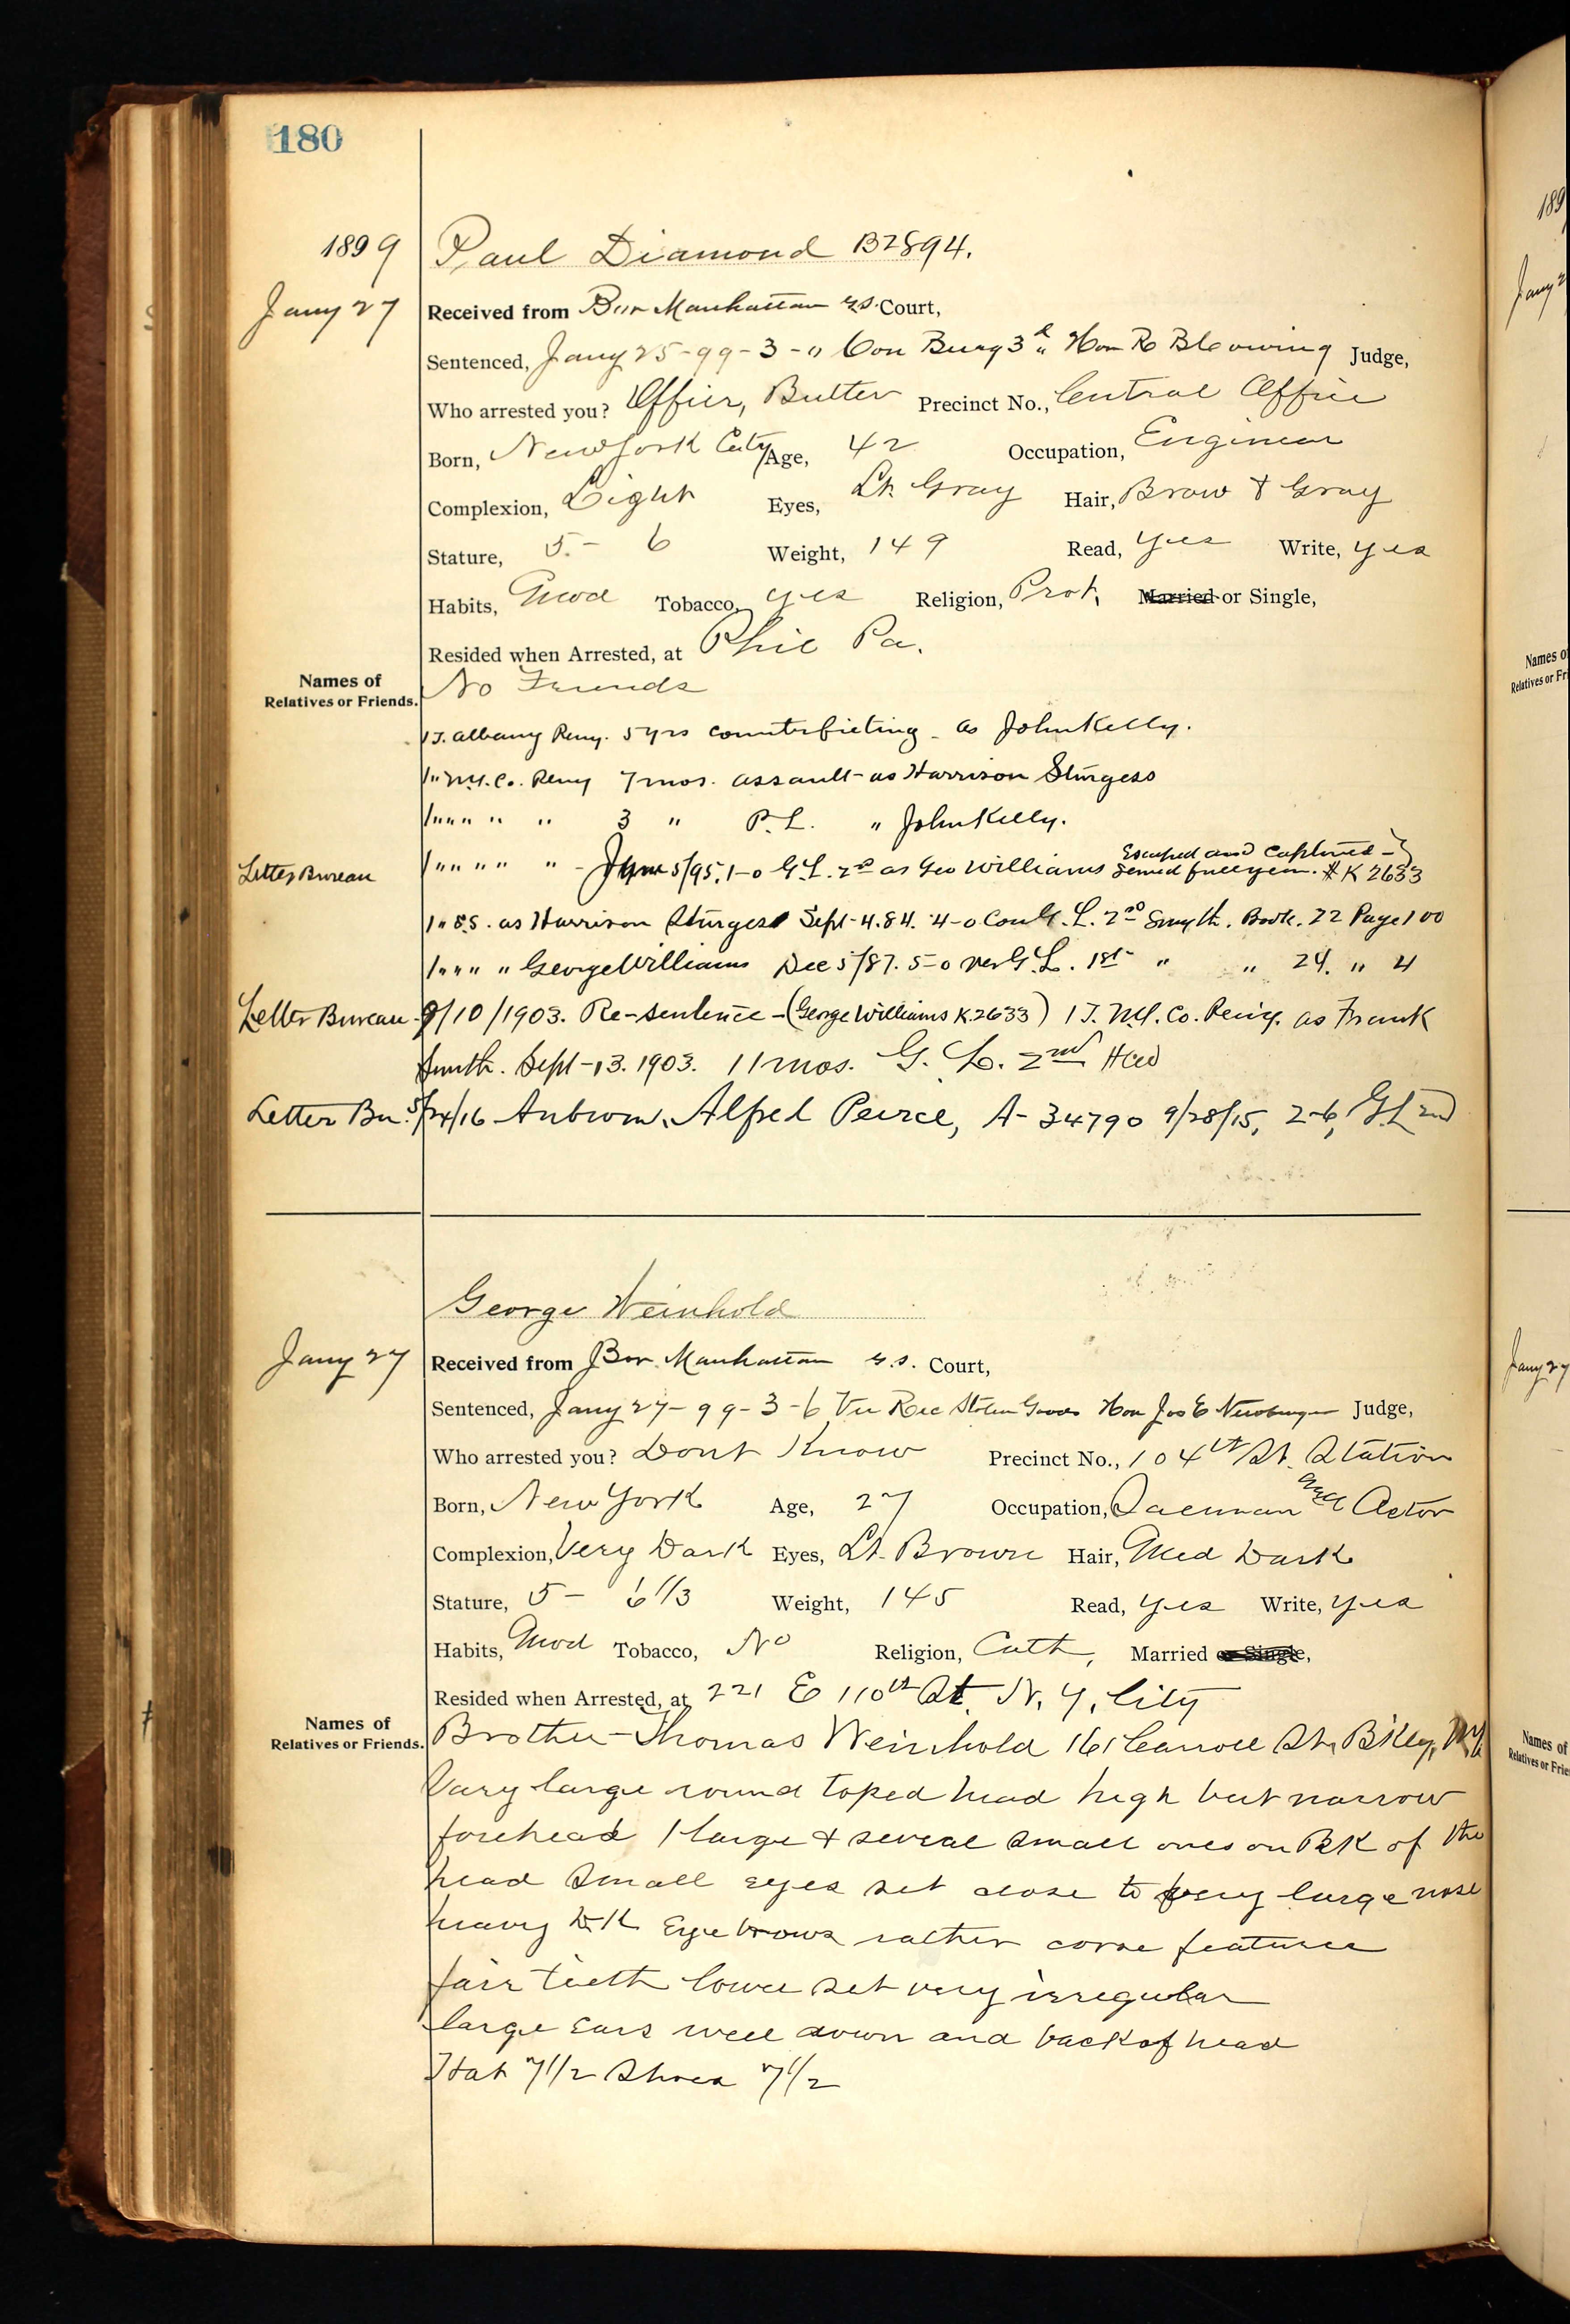 180
1899 Paul Diamond B2894.
Jany 27 Received from Bur Manhattan G.S. Court,
Sentenced, Jany 25-99-3-0 Con Burg 3d Hon R B Cowing Judge,
Who arrested you? Officer, Butler Precinct No., Central Office
Born, New York City Age, 42 Occupation, Engineer
Complexion, Light Eyes, Lt. Gray Hair, Brow & Gray
Stature, 5.- 6 Weight, 149 Read, yes Write, yes
Habits, Mod Tobacco, yes Religion, Prot. Married or Single,
Resided when Arrested, at Phil Pa.
Names of Relatives or Friends. No Friends
1 T. Albany Peny. 5 yrs counterfieting - as John Kelly.
1 " N.Y. Co. Peny 7 mos. assault - as Harrison Sturgess
1 " " " " " 3 " P.L. " John Kelly.
Letter Bureau 1 " " " " " - June 5/95. 1-0 G.L. 2nd as Geo Williams Escaped and Captured - Served full year. # K 2633
1 " S.S. as Harrison Sturgess Sept-4.84. 4-0 Con G.L. 2nd Smyth. Book. 22 Page 100
1 " " " " George Williams Dec 5/87. 5-0 Ver G.L. 1st " " 24. " 4
Letter Bureau - 9/10/1903. Re-sentence - (George Williams K.2633) 1 T. N.Y. Co. Peny. as Frank
Smith. Sept-13.1903. 11 mos. G. L. 2nd
Letter Bu. 5/24/16 Auburn, Alfred Peirce, A-34790 9/28/15, 2-6, G.L 2nd
George Weinhold
Jany 27 Received from Bor Manhattan G.S. Court,
Sentenced, Jany 27-99-3-6 Ver Rec Stolen Goods Hon Jos E Newburger Judge,
Who arrested you? Dont Know Precinct No., 104th St. Station
Born, New York Age, 27 Occupation, and Actor
Complexion, Very Dark Eyes, Lt. Brown Hair, Med Dark
Stature, 5- 6 1/3 Weight, 145 Read, yes Write, yes
Habits, Mod Tobacco, No Religion, Cath, Married or Single,
Resided when Arrested, at 221 E 110th St. N. Y. City
Names of Relatives or Friends. Brother - Thomas Weinhold 161 Carroll St, Bklly, N.Y.
Vary large round toped head high but narrow
forehead 1 large & several small ones on BK of the
head Small eyes set close to very large nose
heavy DK Eye brows rather corse features
fair teeth lower set very irregular
large Ears well down and back of head
Hat 7 1/2 Shoes 7 1/2